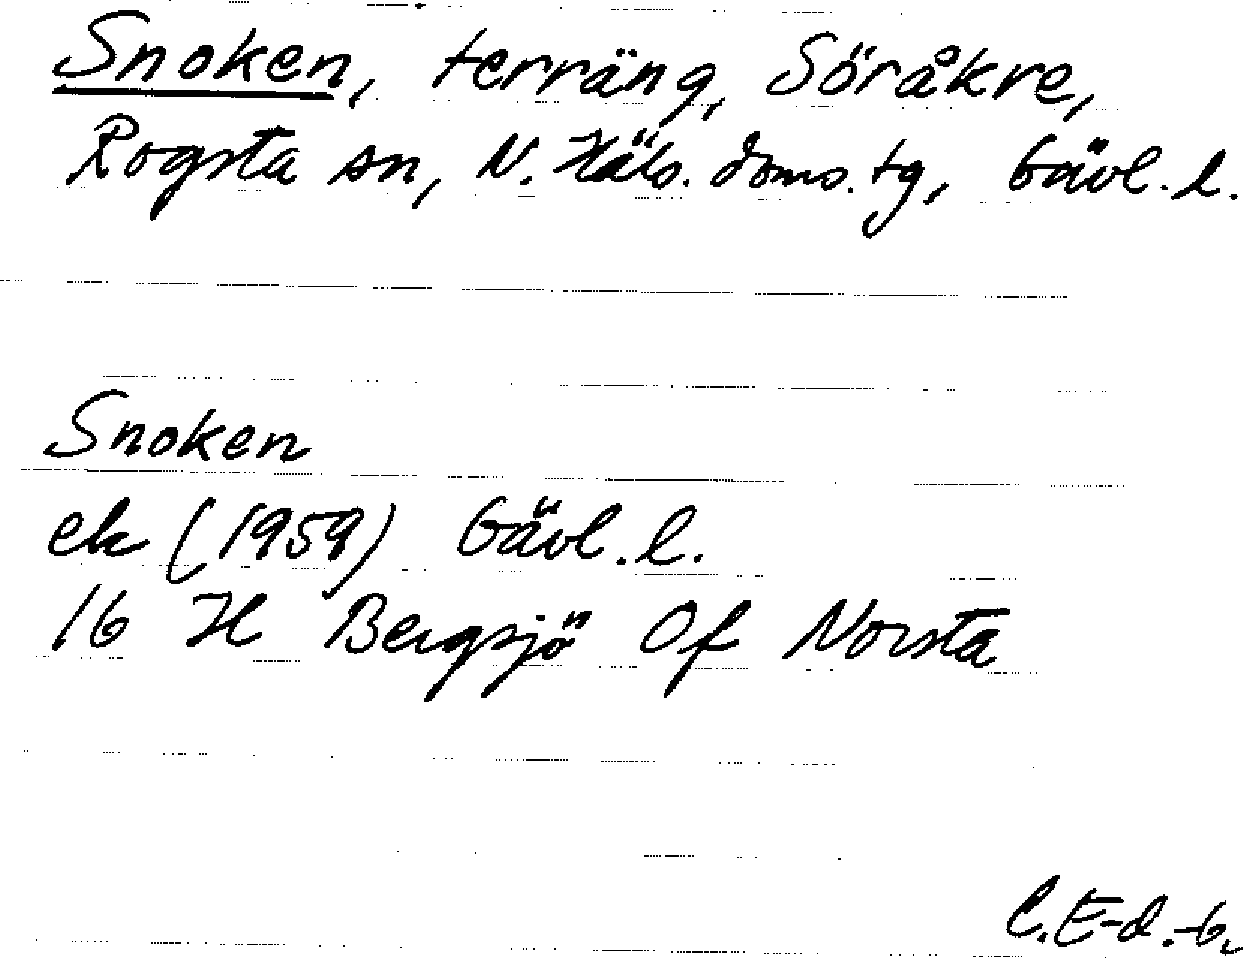 Snoken, terräng, Söråkre,
Rogsta sn, N. Häls. doms. tg, Gävl. l.
Snoken
ek (1959) Gävl. l.
16 H Bergsjö Of Norsta
C. E-d.-b.